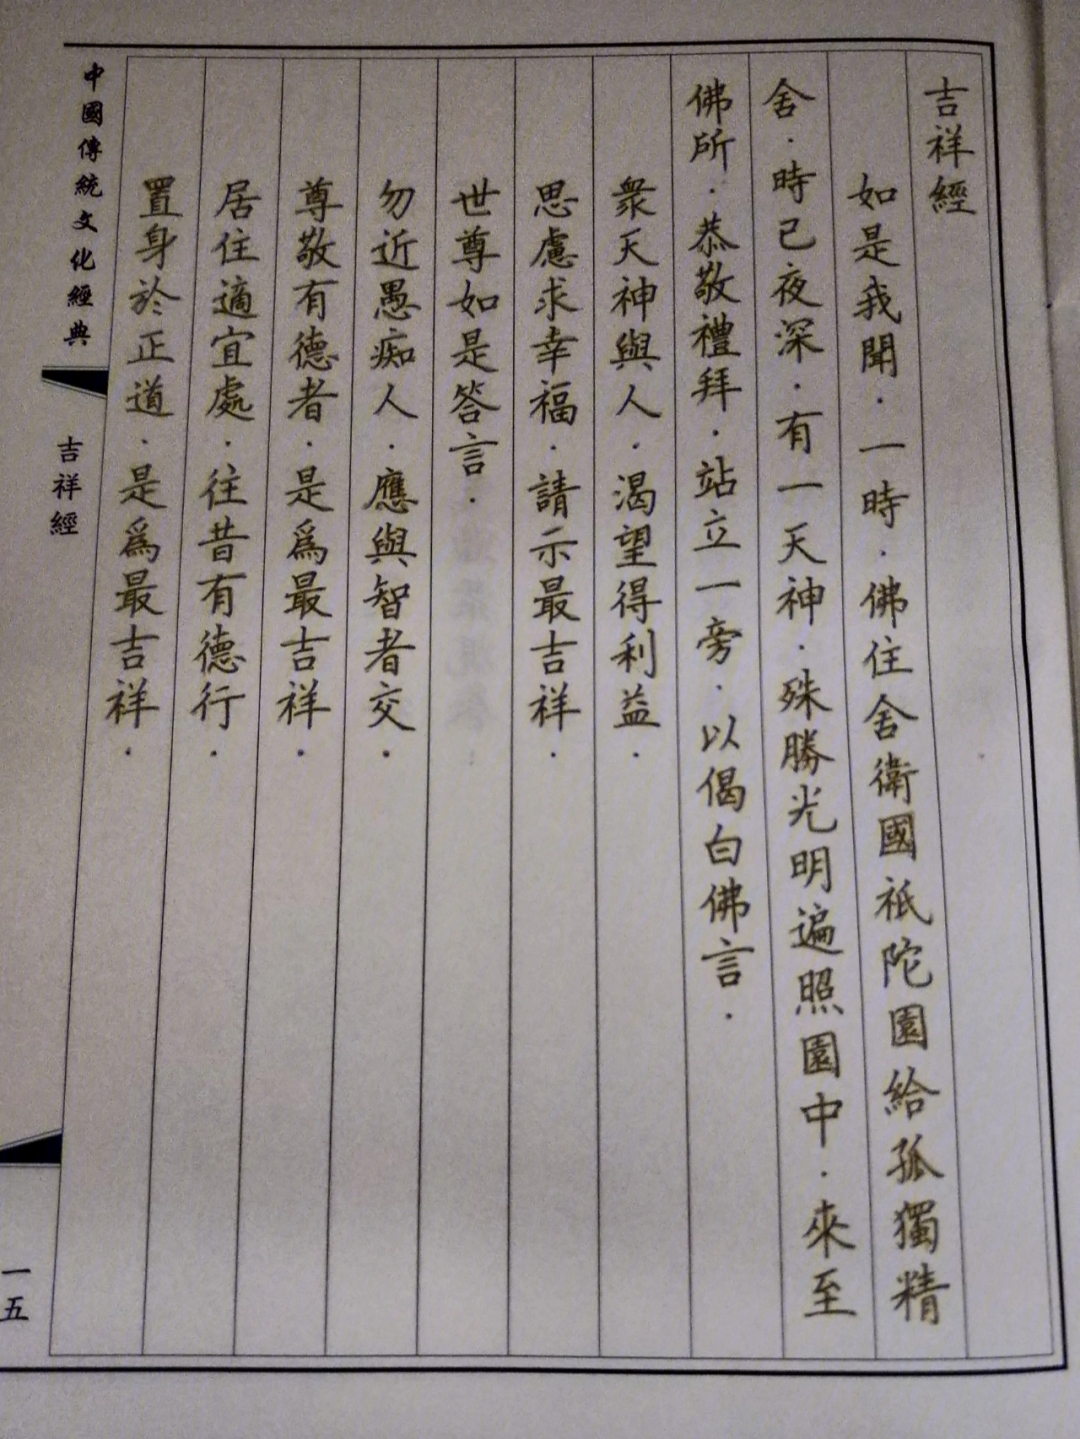 吉祥經
如是我聞．一時．佛住舍衛國祇陀園給孤獨精
舍．時已夜深．有一天神．殊勝光明遍照園中．來至
佛所．恭敬禮拜．站立一旁．以偈白佛言．
衆天神與人．渴望得利益．
思慮求幸福．請示最吉祥．
世尊如是答言．
勿近愚痴人．應與智者交．
尊敬有德者．是爲最吉祥．
居住適宜處．往昔有德行．
置身於正道．是爲最吉祥．
中國傳統文化經典
吉祥經
一五